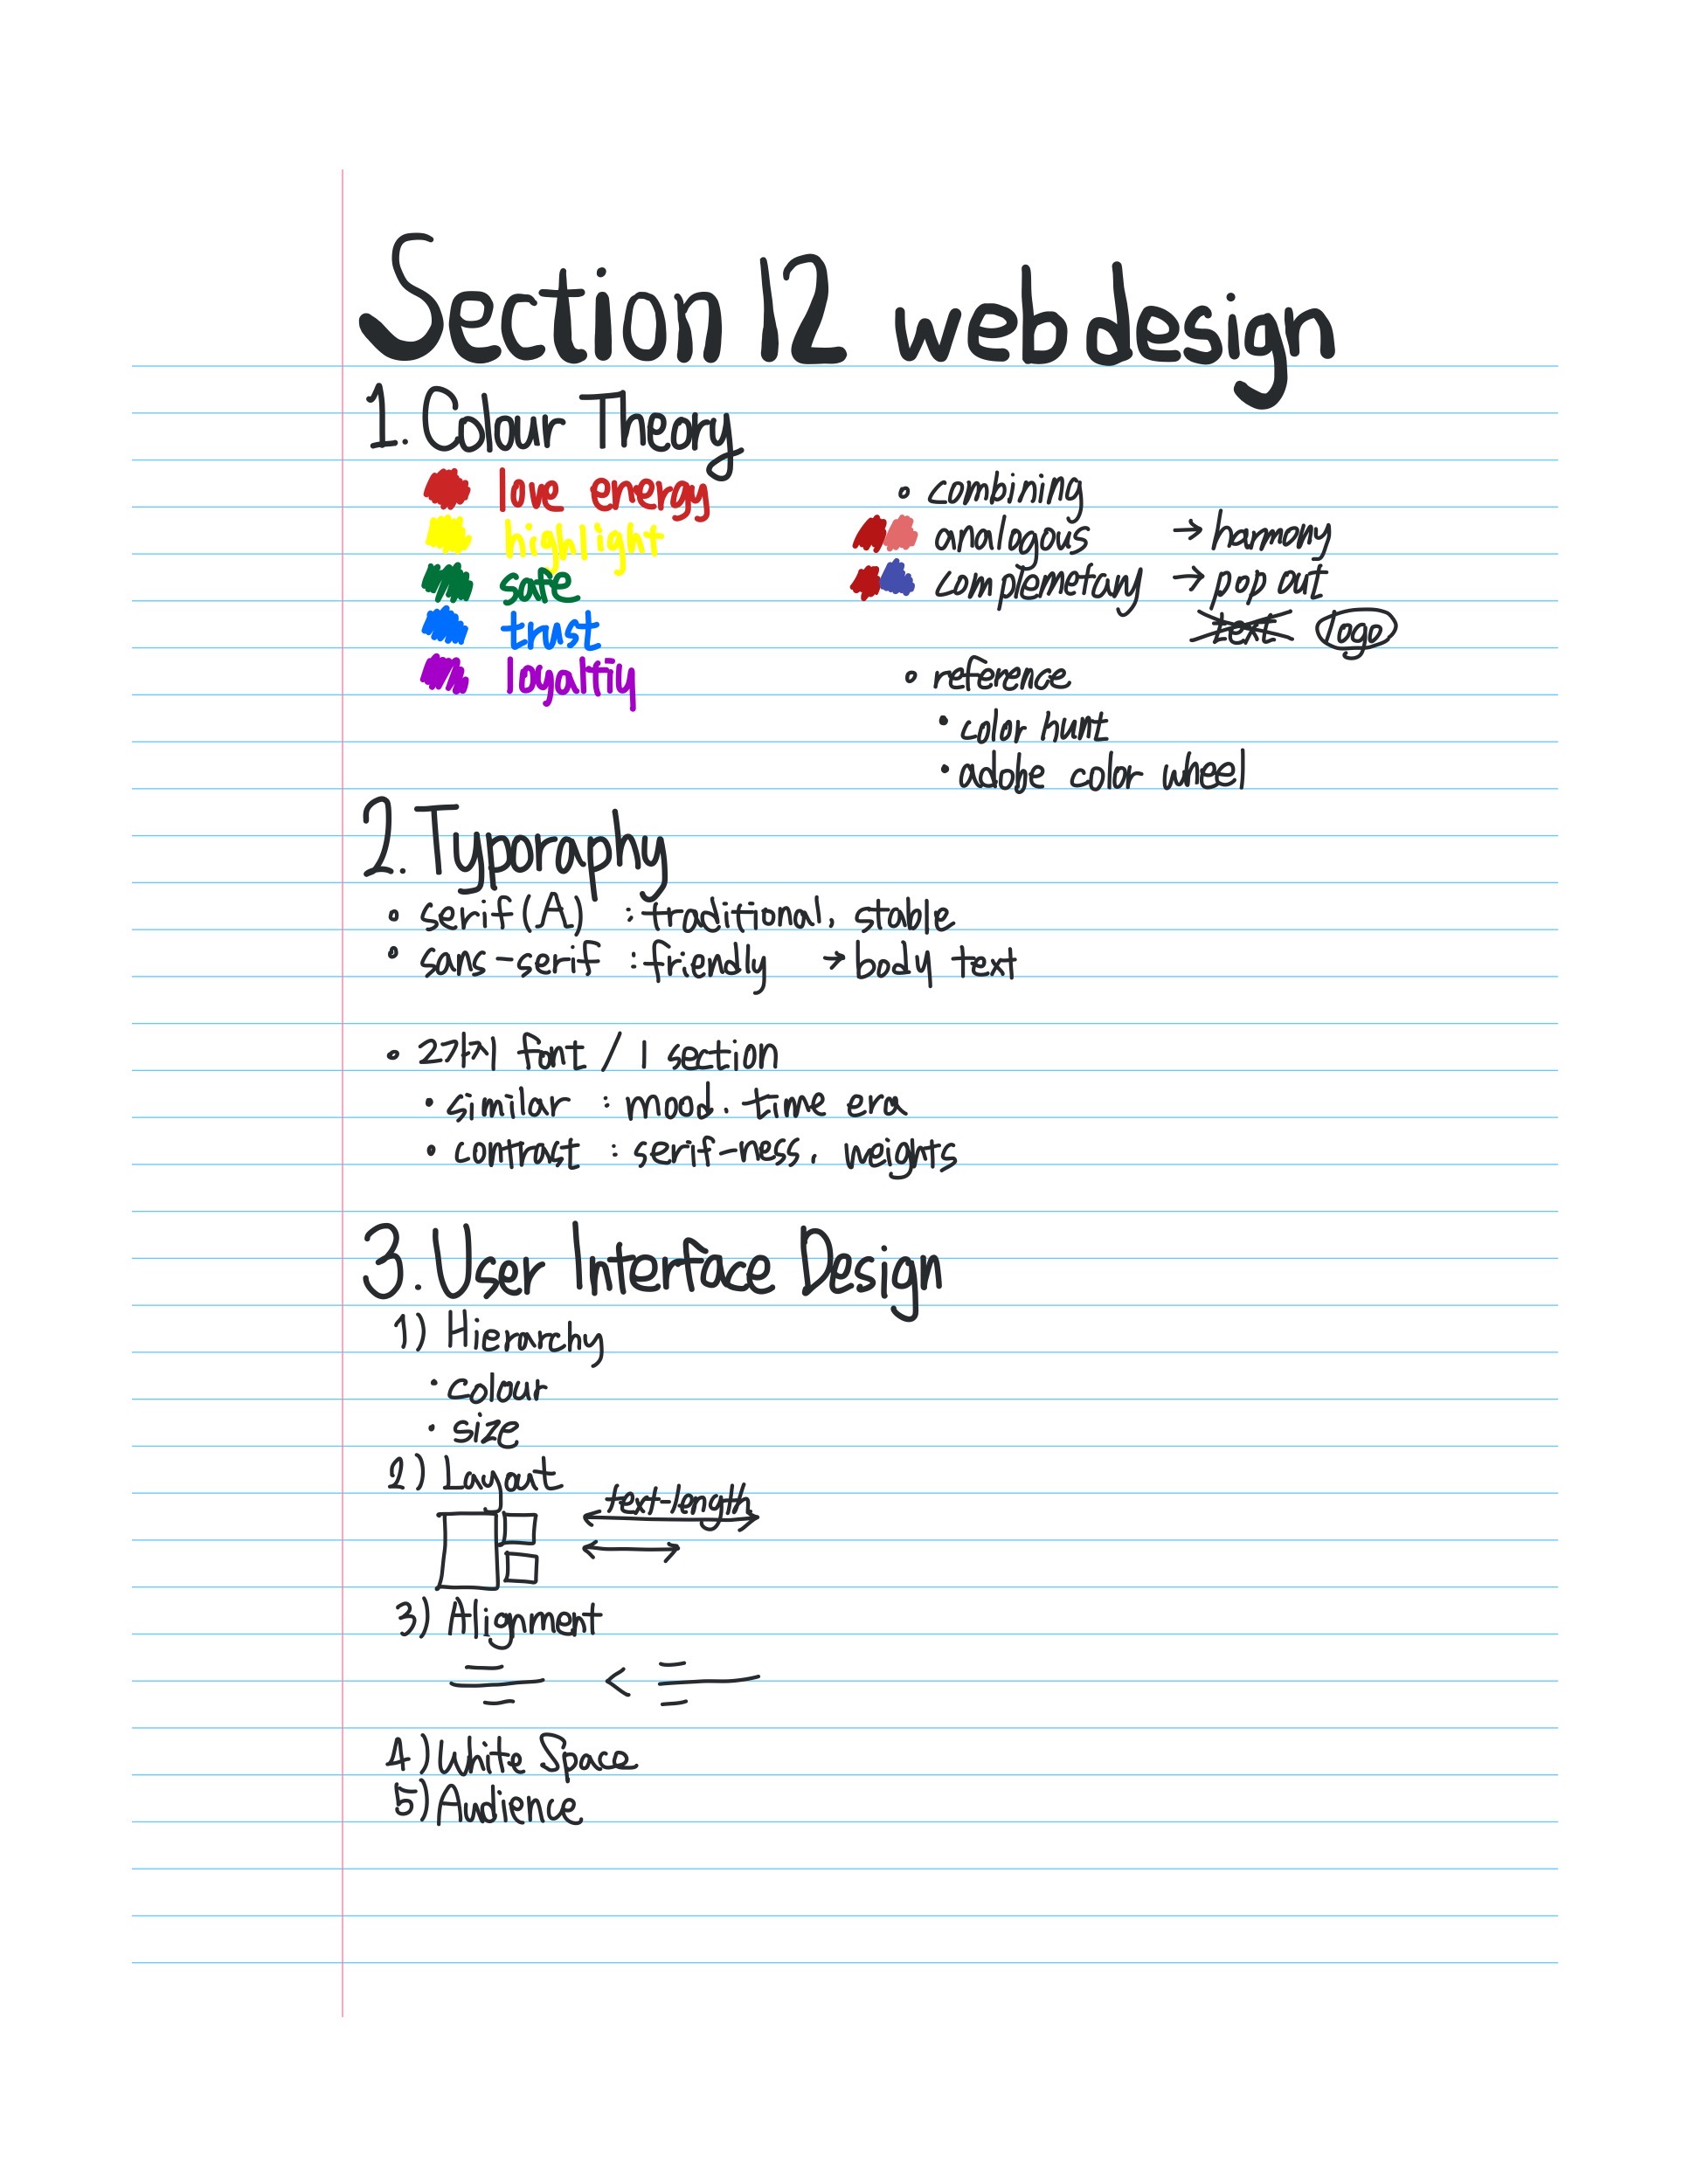 Section 12 web design
1. Colour Theory
love energy
highlight
safe
trust
loyaltiy
○ combining
analogous → harmony
complemetary → pop out
text logo
○ reference
• color hunt
• adobe color wheel
2. Typoraphy
○ serif (A) : traditional, stable
○ sans-serif : friendly → body text
○ 2가지 font / 1 section
• similar : mod. time era
• contrast : serif-ness, weights
3. User Interface Design
1) Hierarchy
• colour
• size
2) Layout
text-length
3) Alignment
<
4) White Space
5) Audience